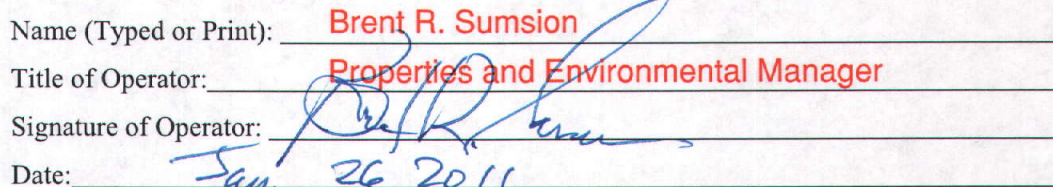 Name (Typed or Print): Brent R. Sumsion
Title of Operator: Properties and Environmental Manager
Signature of Operator: Brent R. Sumsion
Date: Jan. 26 2011